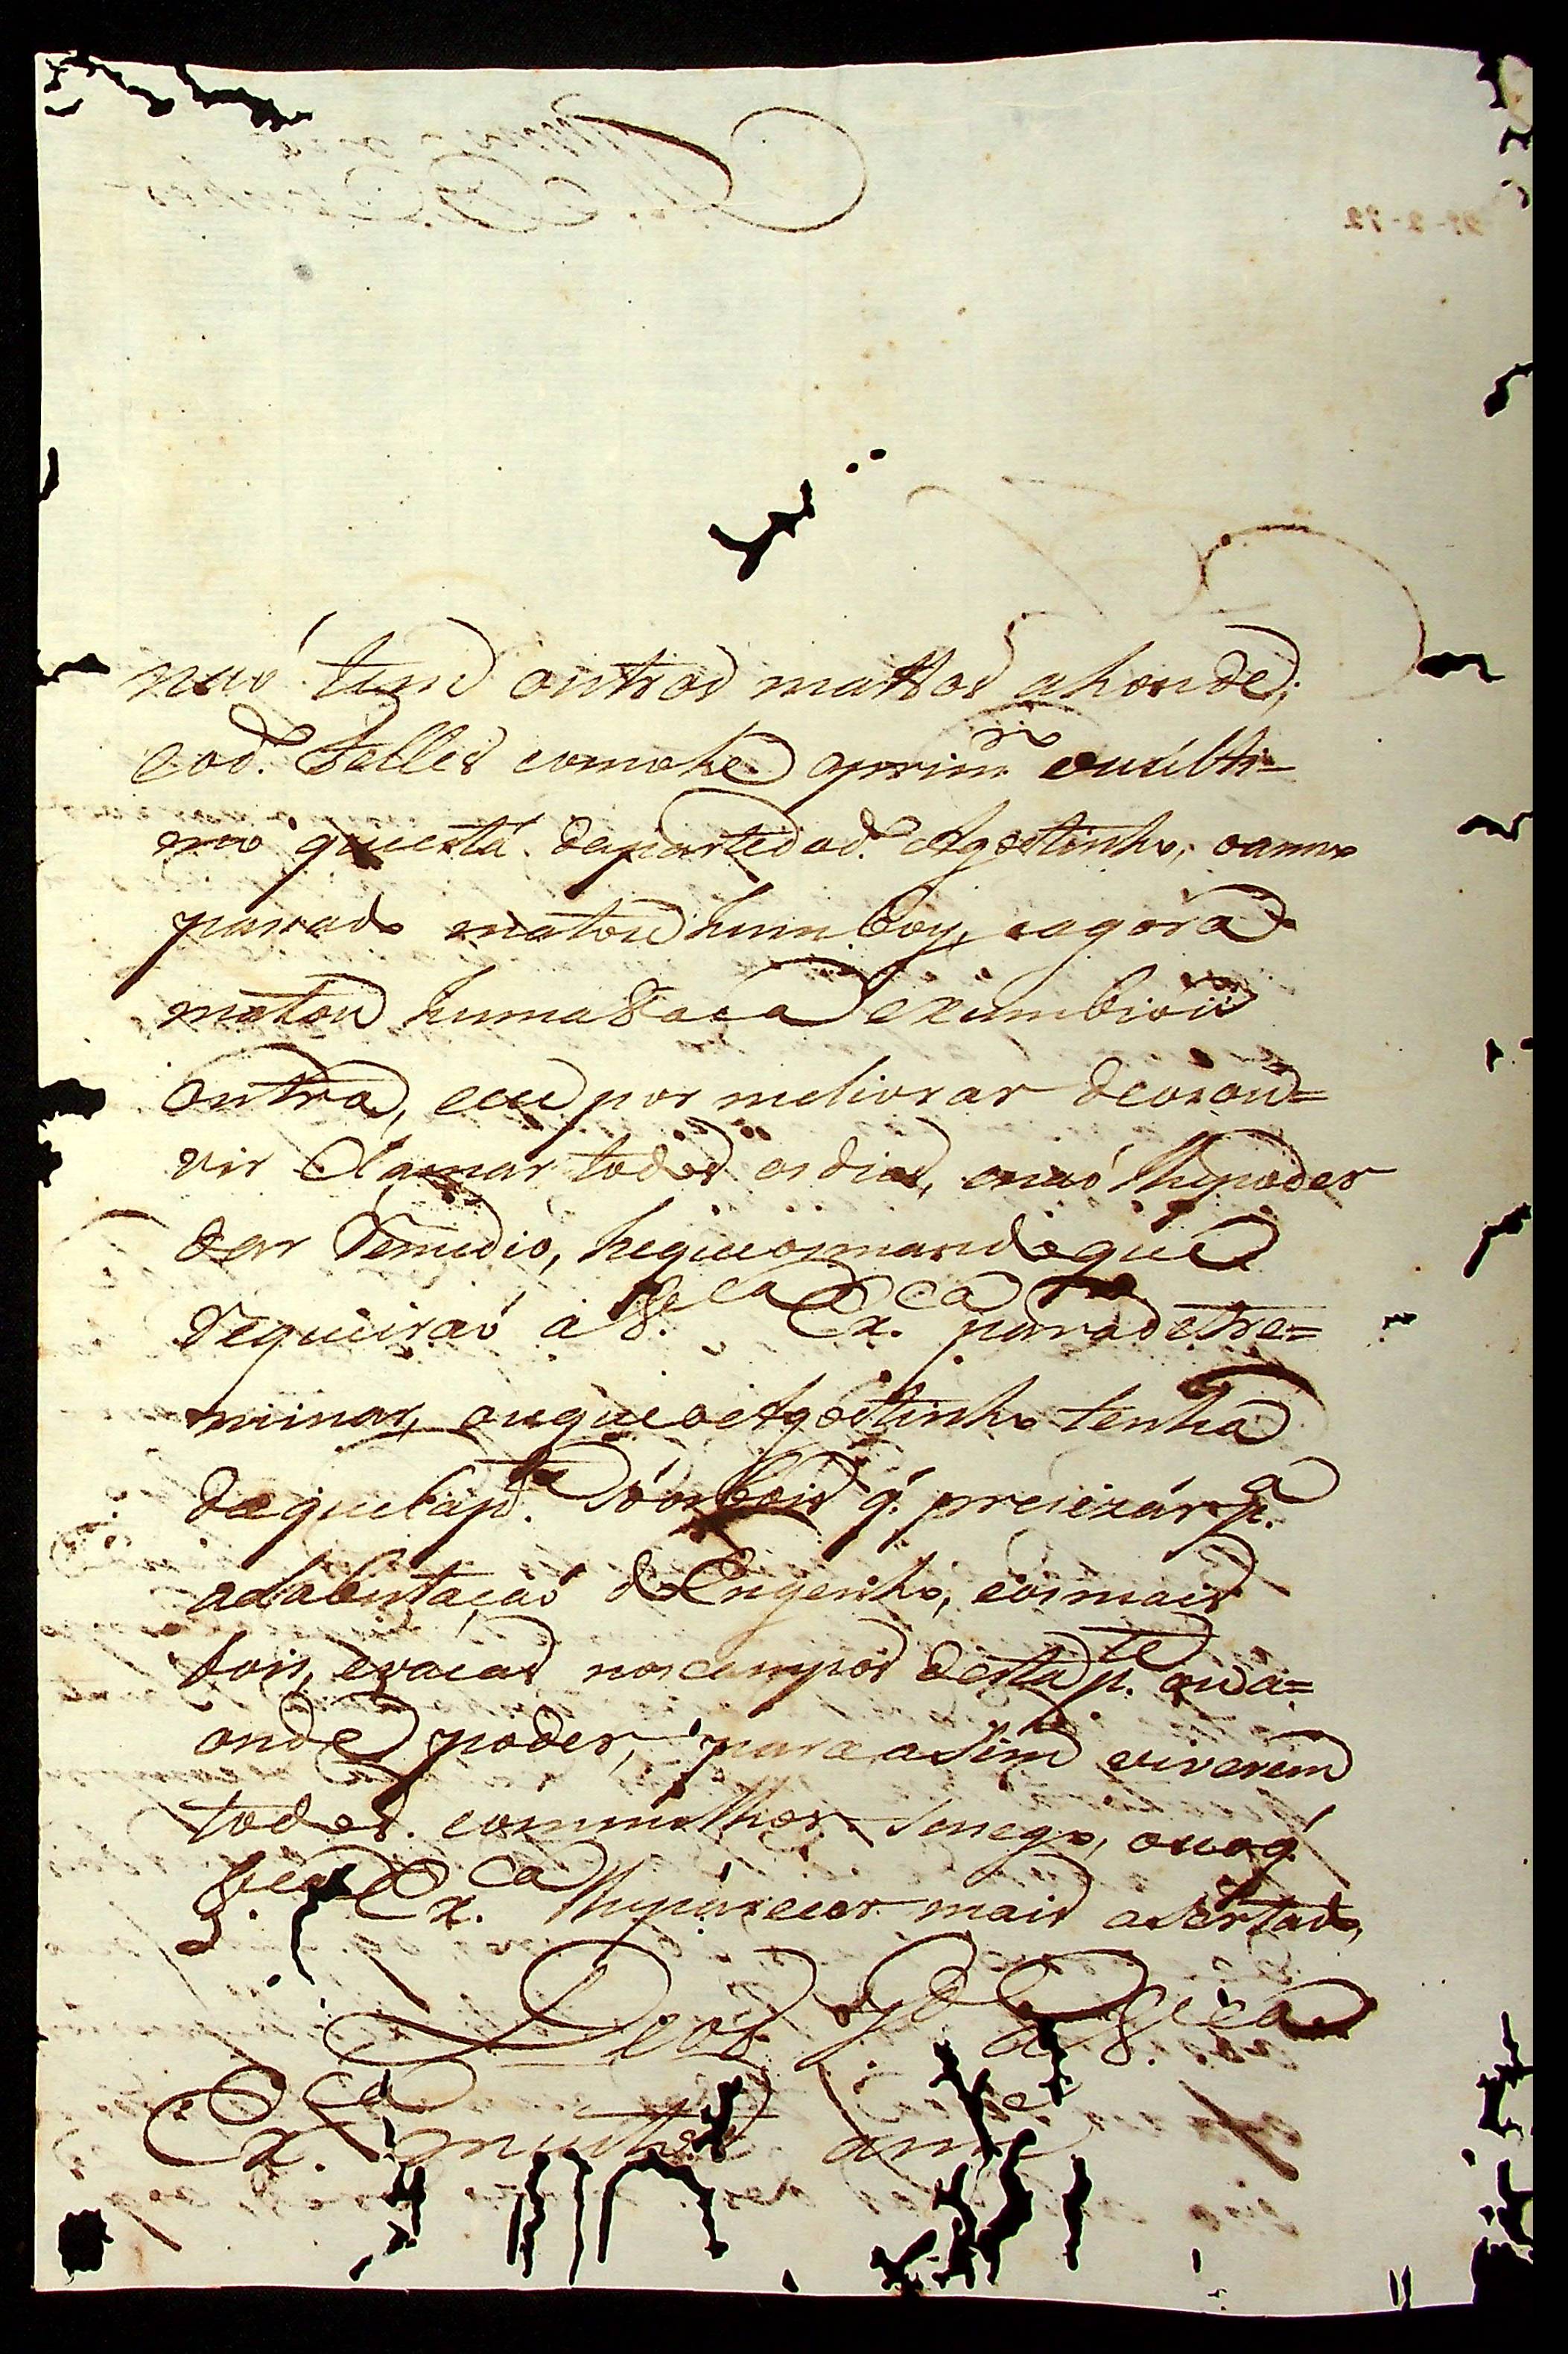 naó tem outros mattos ahonde;
eod.º Telles como he oprim.ro ouúlti-
mo queestá. dapartedod.º Agostinho, oanno
passado matou hum boy, eagóra
matou humaVaca exumbioú
Outra, eeu por meliorar deosou-
vir Clamar todos osdias, enaó lhepoder
dar Remedio, hequeosmandoque
Requeiraó a V.ª Ex.ca para
minar, ouqueoAgostinho tenha
daquelap.te Sóosbois q' precizár p.ª
adabutaçaó doEngenho, eosmais
bois, evacas noscampos desta p.te ou a-
onde poder, para asim viverem
todos. commilhor Sonego, ouoq'
V.ª Ex.ca lheparecer mais asertado,
Deos g.de a V.ª
Ex.ca muitos ann